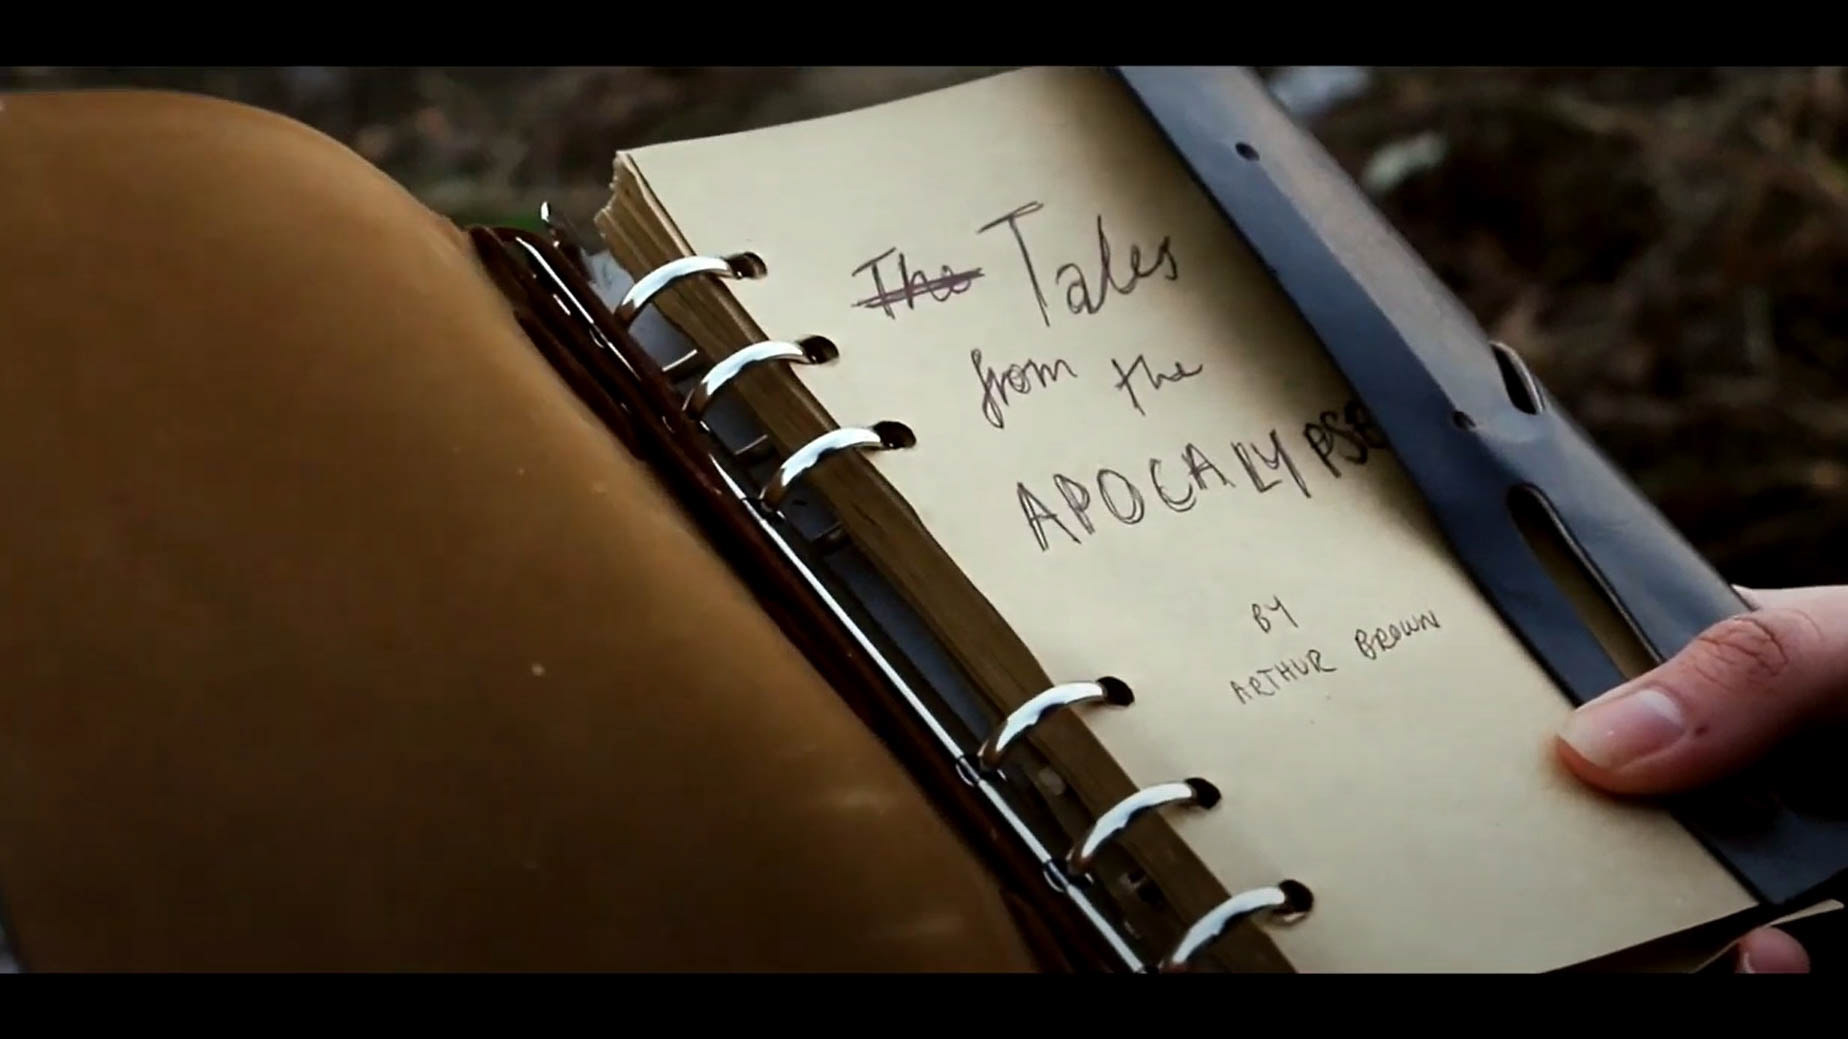 The Tales
from the
APOCALYPSE
BY
ARTHUR BROWN